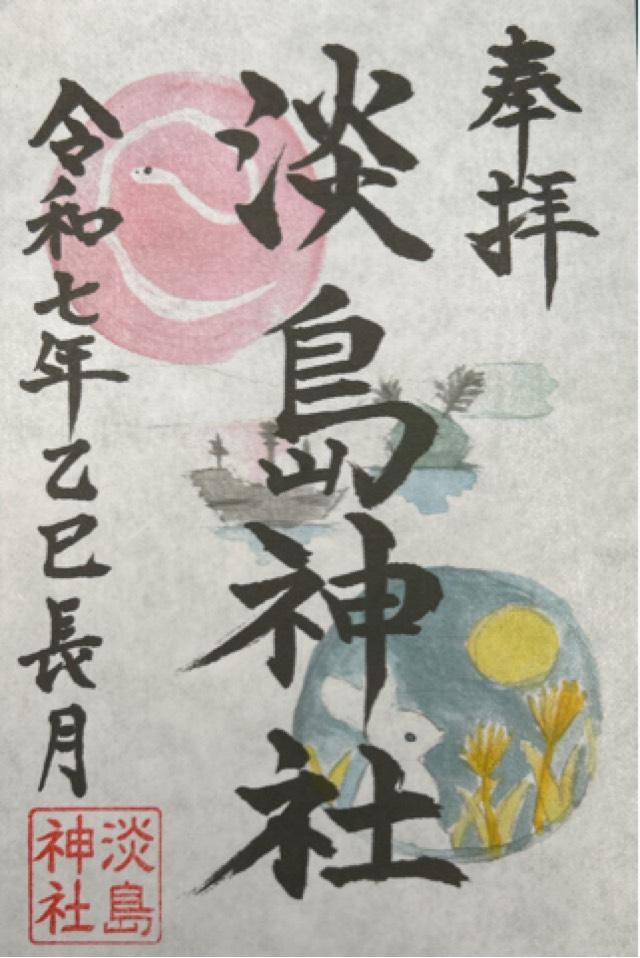 奉拝
淡島神社
令和七年乙巳長月
淡島
神社